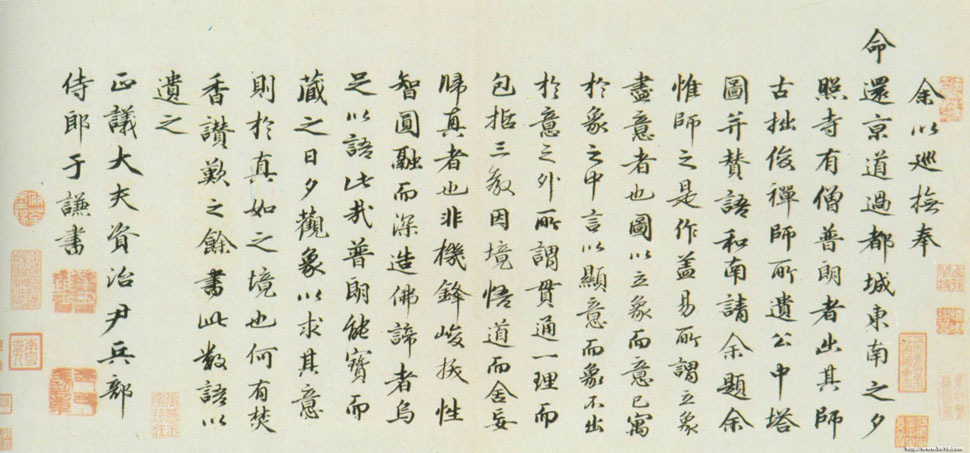 余以巡撫奉
命還京道過都城東南之夕
照寺有僧普朗者出其師
古拙俊禪師所遺公中塔
圖并賛語和南請余題余
惟師之是作盖易所謂立象
盡意者也圖以立象而意已寓
於象之中言以顯意而象不出
於意之外所謂貫通一理而
包括三教因境悟道而舍妄
歸真者也非機鋒峻拔性
智圓融而深造佛諦者烏
足以語此哉普朗能寶而
藏之日夕觀象以求其意
則於真如之境也何有焚
香讃歎之餘書此數語以
遺之
正議大夫資治尹兵部
侍郎于謙書